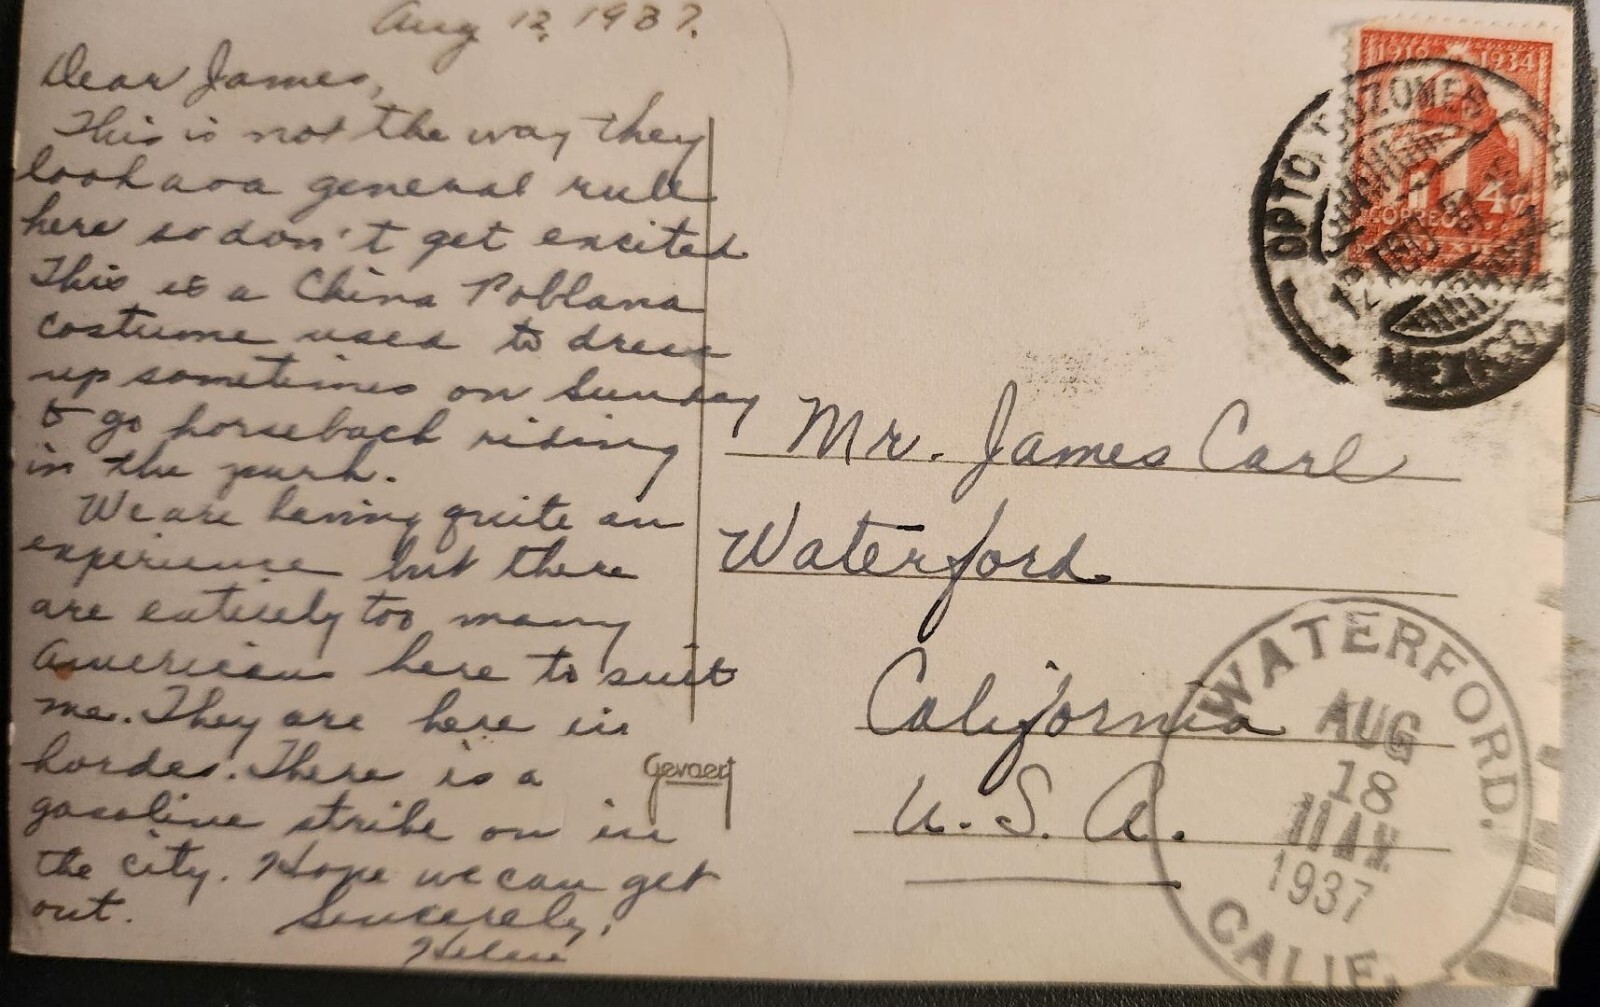 Aug 12, 1937.
Dear James,
This is not the way they
look as a general rule
here so don't get excited
This is a China Poblana
costume used to dress
up sometimes on Sunday
& go horseback riding
in the park.
We are having quite an
experience but there
are entirely too many
Americans here to suit
me. They are here in
hordes. There is a
gasoline strike on in
the city. Hope we can get
out. Sincerely,
Helen
Gevaert
1910 1934
4c
CORREOS
MEXICO
DPTO. BUZONES
12 AGO
MEXICO
Mr. James Carl
Waterford
California
U. S. A.
WATERFORD.
AUG
18
11 AM
1937
CALIF.